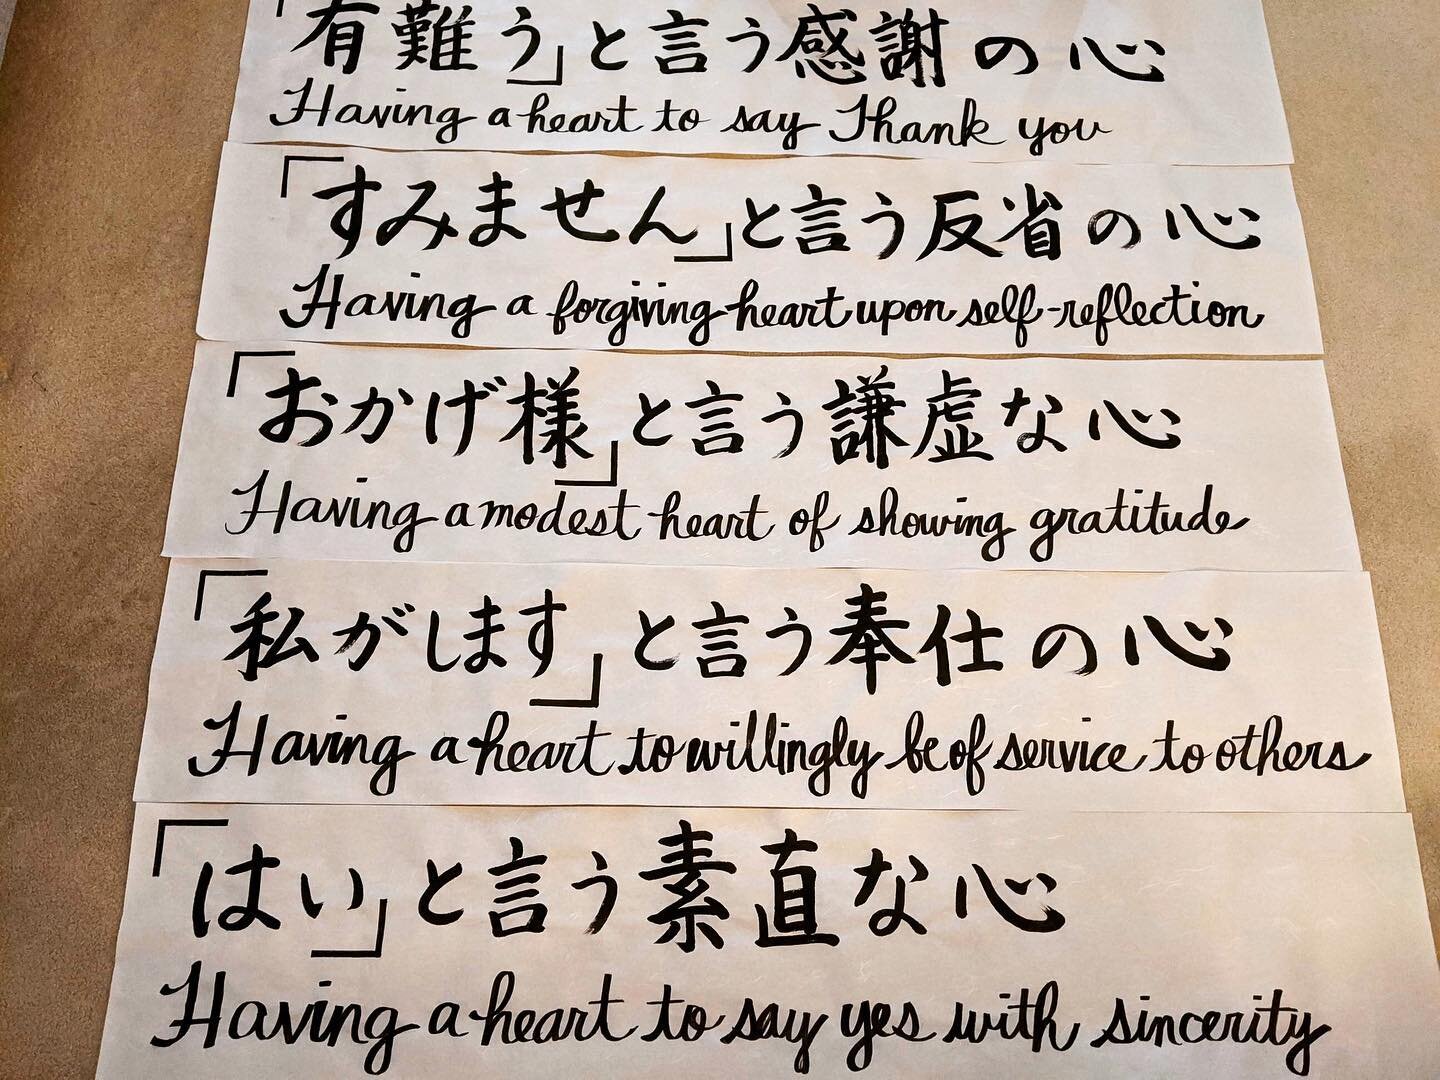 「有難う」と言う感謝の心
Having a heart to say Thank you
「すみません」と言う反省の心
Having a forgiving heart upon self-reflection
「おかげ様」と言う謙虚な心
Having a modest heart of showing gratitude
「私がします」と言う奉仕の心
Having a heart to willingly be of service to others
「はい」と言う素直な心
Having a heart to say yes with sincerity